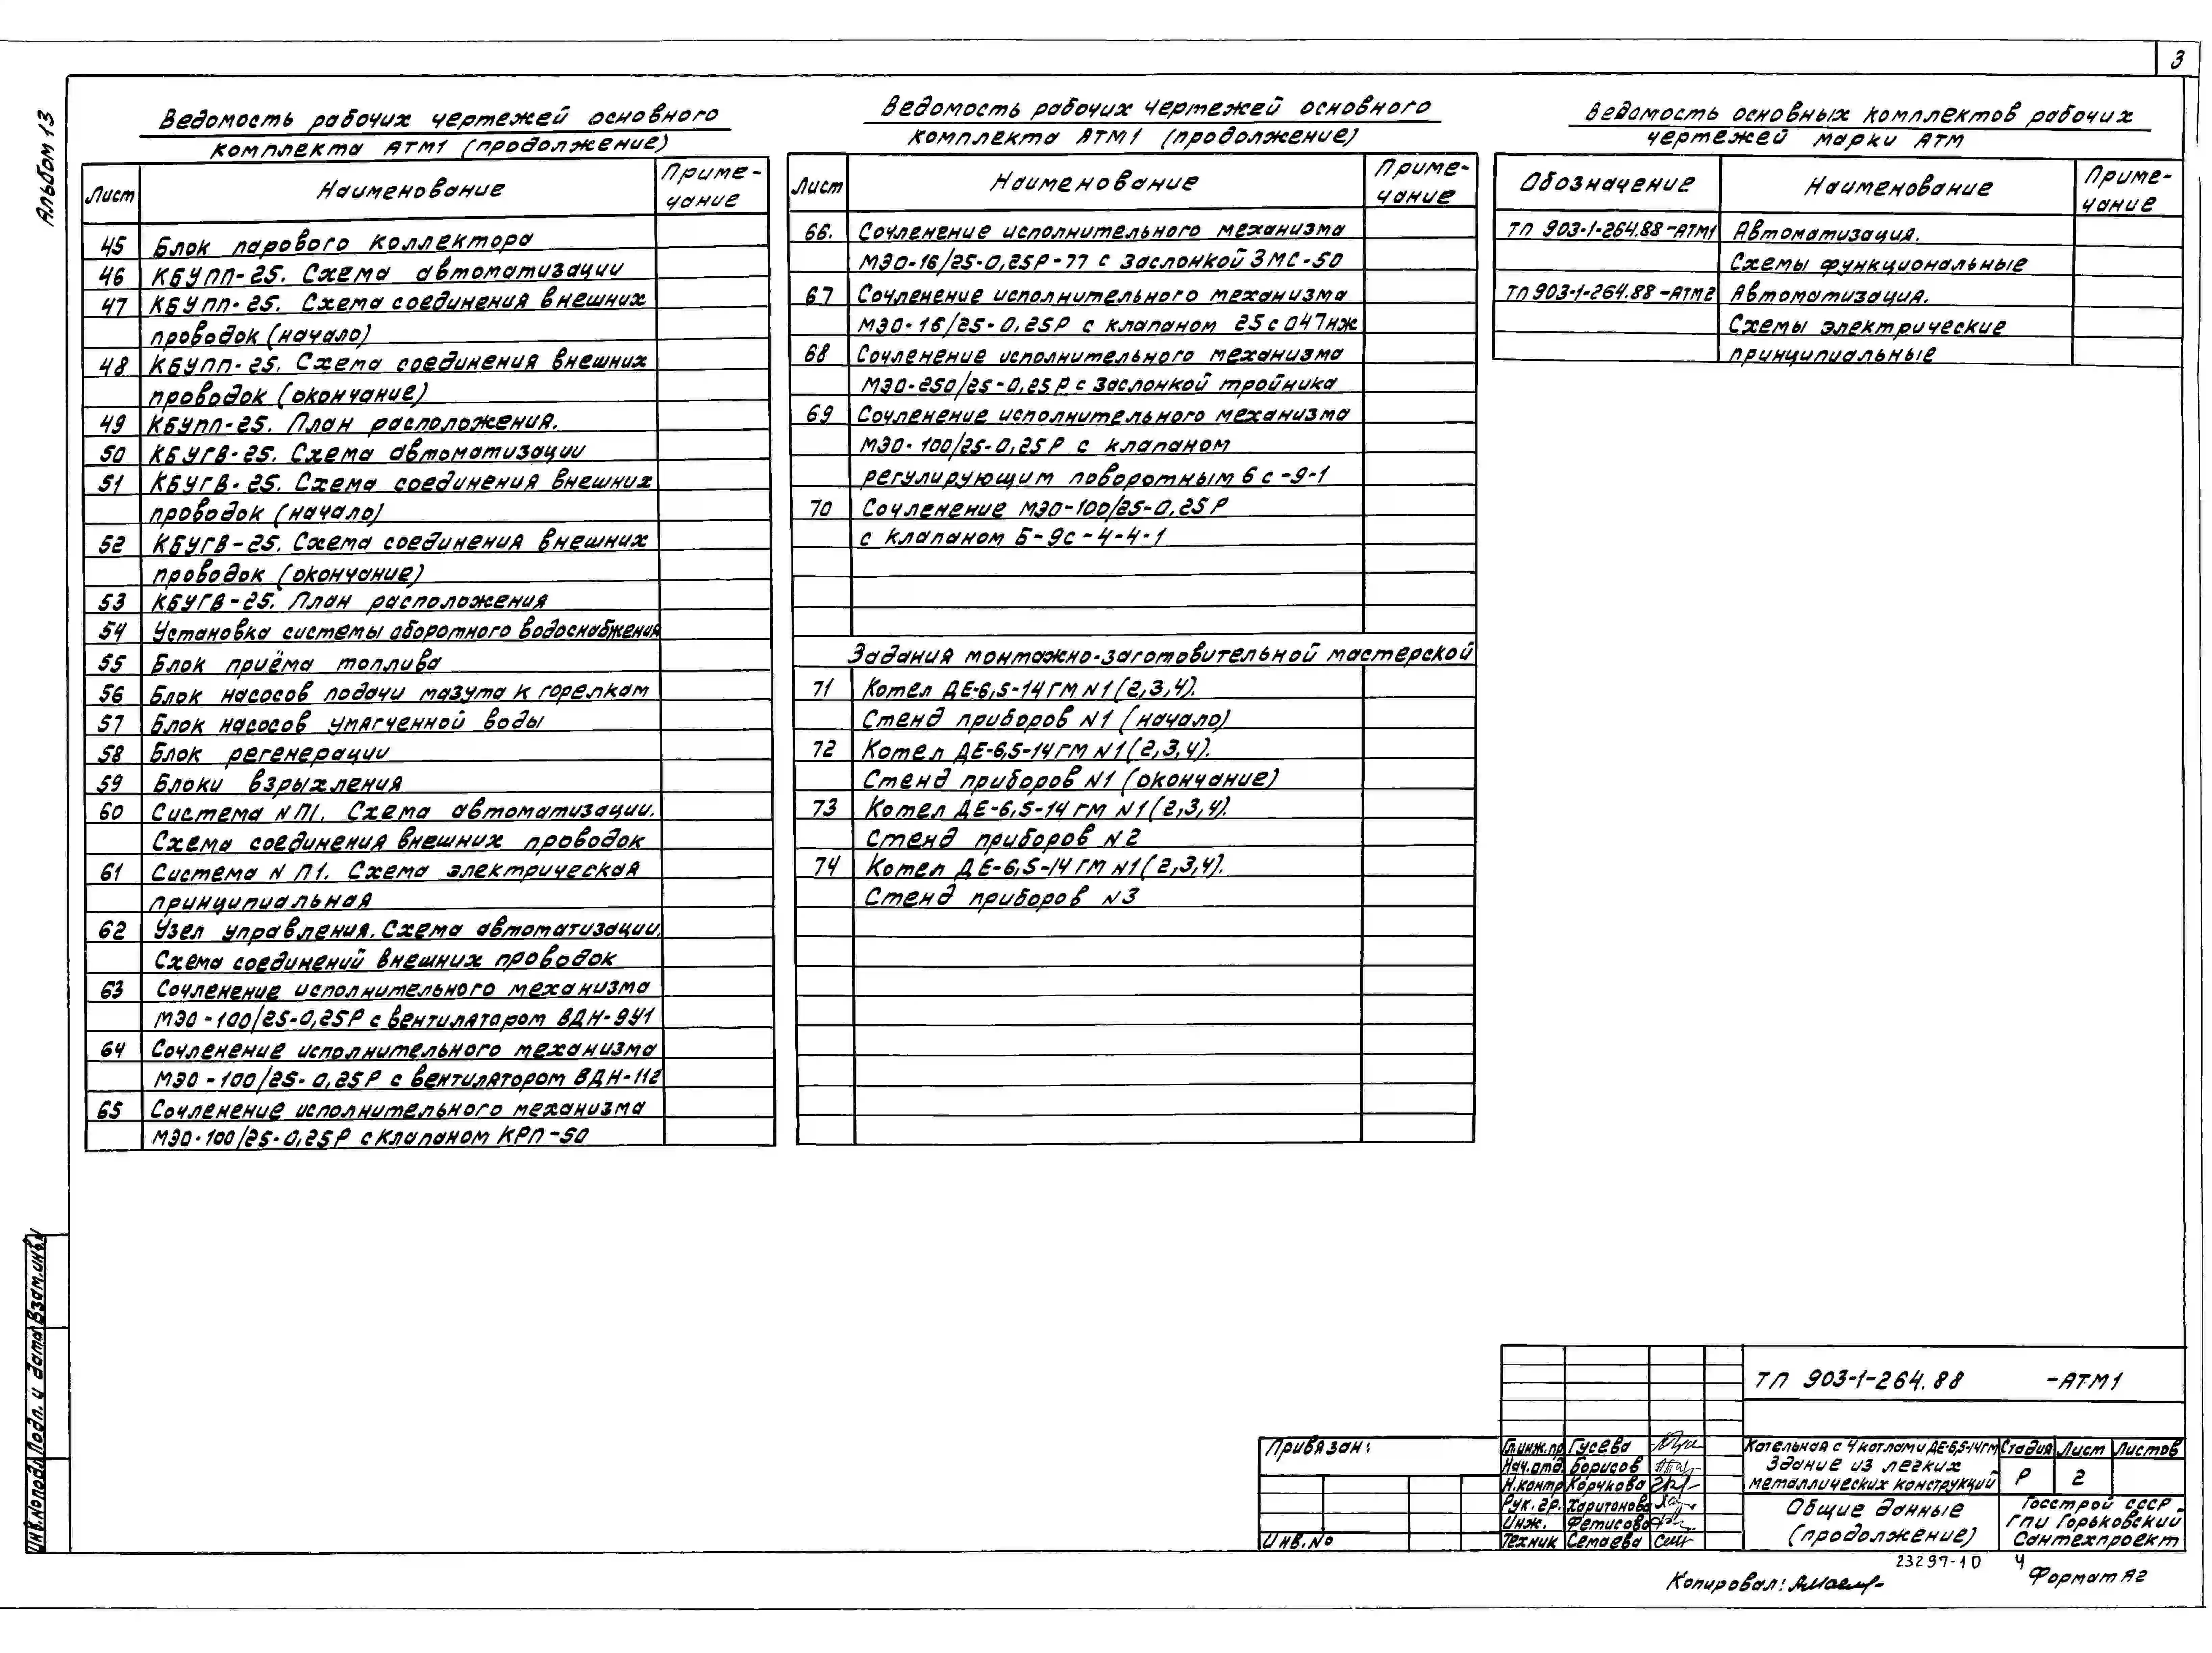 3
Альбом 13
Ведомость рабочих чертежей основного
комплекта АТМ1 (продолжение)
Лист Наименование Приме-
чание
45 Блок парового коллектора
46 КБУПП-25. Схема автоматизации
47 КБУПП-25. Схема соединения внешних
проводок (начало)
48 КБУПП-25. Схема соединения внешних
проводок (окончание)
49 КБУПП-25. План расположения.
50 КБУГВ-25. Схема автоматизации
51 КБУГВ-25. Схема соединения внешних
проводок (начало)
52 КБУГВ-25. Схема соединения внешних
проводок (окончание)
53 КБУГВ-25. План расположения
54 Установка системы оборотного водоснабжения
55 Блок приёма топлива
56 Блок насосов подачи мазута к горелкам
57 Блок насосов умягченной воды
58 Блок регенерации
59 Блоки взрыхления
60 Система N П1. Схема автоматизации.
Схема соединения внешних проводок
61 Система N П1. Схема электрическая
принципиальная
62 Узел управления. Схема автоматизации.
Схема соединений внешних проводок
63 Сочленение исполнительного механизма
МЭО-100/25-0,25Р с вентилятором ВДН-9У1
64 Сочленение исполнительного механизма
МЭО-100/25-0,25Р с вентилятором ВДН-112
65 Сочленение исполнительного механизма
МЭО-100/25-0,25Р с клапаном КРП-50
Ведомость рабочих чертежей основного
комплекта АТМ1 (продолжение)
Лист Наименование Приме-
чание
66. Сочленение исполнительного механизма
МЭО-16/25-0,25Р-77 с заслонкой ЗМС-50
67 Сочленение исполнительного механизма
МЭО-16/25-0,25Р с клапаном 25с047нж
68 Сочленение исполнительного механизма
МЭО-250/25-0,25Р с заслонкой тройника
69 Сочленение исполнительного механизма
МЭО-100/25-0,25Р с клапаном
регулирующим поворотным 6с-9-1
70 Сочленение МЭО-100/25-0,25Р
с клапаном Б-9с-4-4-1
Задания монтажно-заготовительной мастерской
71 Котел ДЕ-6,5-14ГМ N1(2,3,4).
Стенд приборов N1 (начало)
72 Котел ДЕ-6,5-14ГМ N1(2,3,4).
Стенд приборов N1 (окончание)
73 Котел ДЕ-6,5-14ГМ N1(2,3,4).
Стенд приборов N2
74 Котел ДЕ-6,5-14ГМ N1(2,3,4).
Стенд приборов N3
Ведомость основных комплектов рабочих
чертежей марки АТМ
Обозначение Наименование Приме-
чание
ТП 903-1-264.88-АТМ1 Автоматизация.
Схемы функциональные
ТП 903-1-264.88-АТМ2 Автоматизация.
Схемы электрические
принципиальные
Инв.№подл. Подп. и дата Взам.инв.№
Привязан:
Инв.№
ТП 903-1-264.88 -АТМ1
Гл.инж.пр Гусева
Нач.отд. Борисов
Н.контр Корчкова
Рук.гр. Харитонова
Инж. Фетисова
Техник Семаева
Котельная с 4 котлами ДЕ-6,5-14ГМ
Здание из легких
металлических конструкций
Стадия Лист Листов
Р 2
Общие данные
(продолжение)
Госстрой СССР
ГПИ Горьковский
Сантехпроект
23297-10 4
Копировал:
Формат А2